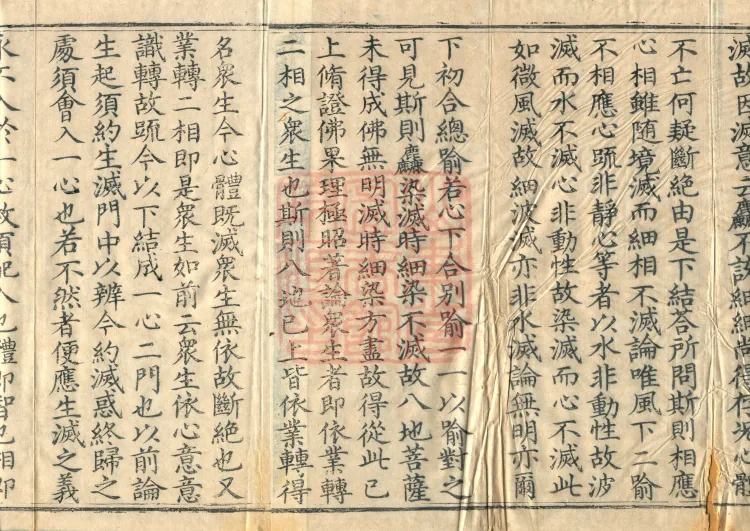 滅故因滅意云麤不許細細尚得存㳄心體
不亡何疑斷絶由是下結荅所問斯則相應
心相雖随境滅而細相不滅論唯風下二喻
不相應心䟽非靜心等者以水非動性故波
滅而水不滅心非動性故染滅而心不滅此
如微風滅故細波滅亦非水滅論無明亦爾
下初合總喻若心下合別喻一一以喻對之
可見斯則麤染滅時細染不滅故八地菩薩
未得成佛無明滅時細染方盡故得從此已
上脩證佛果理極昭著論衆生者即依業轉
二相之衆生也斯則八地已上皆依業轉得
名衆生今心體既滅衆生無依故斷絶也又
業轉二相即是衆生如前云衆生依心意意
識轉故䟽今以下結成一心二門也以前論
生起須約生滅門中以辨今約滅惑終歸之
處須會入一心也若不然者便應生滅之義
入於一心故須配入也體即智也相即